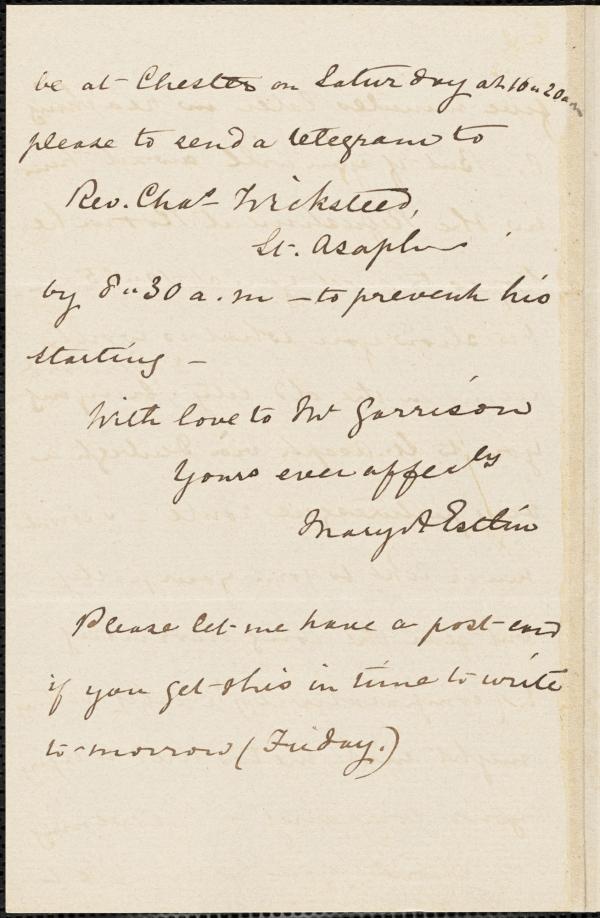 be at Chester on Saturday at 10.20 a.m
please to send a telegram to
Rev. Chas Wicksteed,
St. Asaph
by 8.30 a.m - to prevent his
starting -
With love to Mr Garrison
Yours ever affecly
Mary A Estlin
Please let me have a post-card
if you get this in time to write
to-morrow (Friday.)